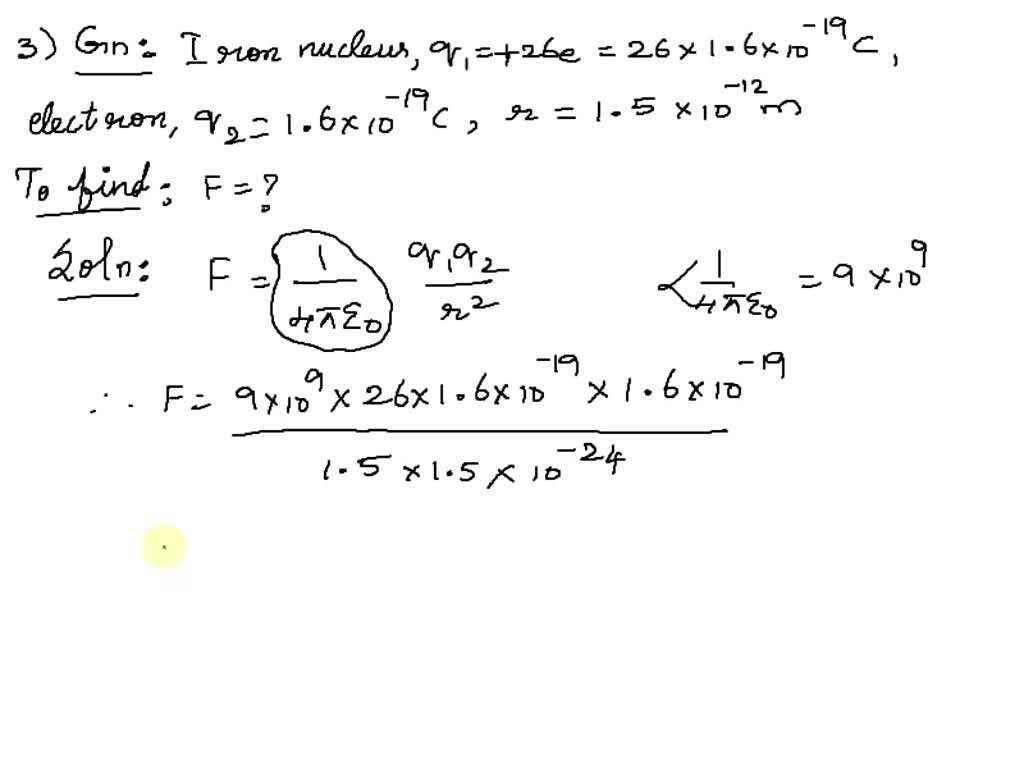 3) Gn: Iron nucleus, q₁=+26e = 26×1.6×10⁻¹⁹C,
electron, q₂=1.6×10⁻¹⁹C, r = 1.5 ×10⁻¹²m
To find: F=?
Soln: F = 1/4πε₀ q₁q₂/r² & 1/4πε₀ = 9 ×10⁹
∴ F= 9×10⁹ × 26×1.6×10⁻¹⁹ × 1.6×10⁻¹⁹
1.5 ×1.5 × 10⁻²⁴